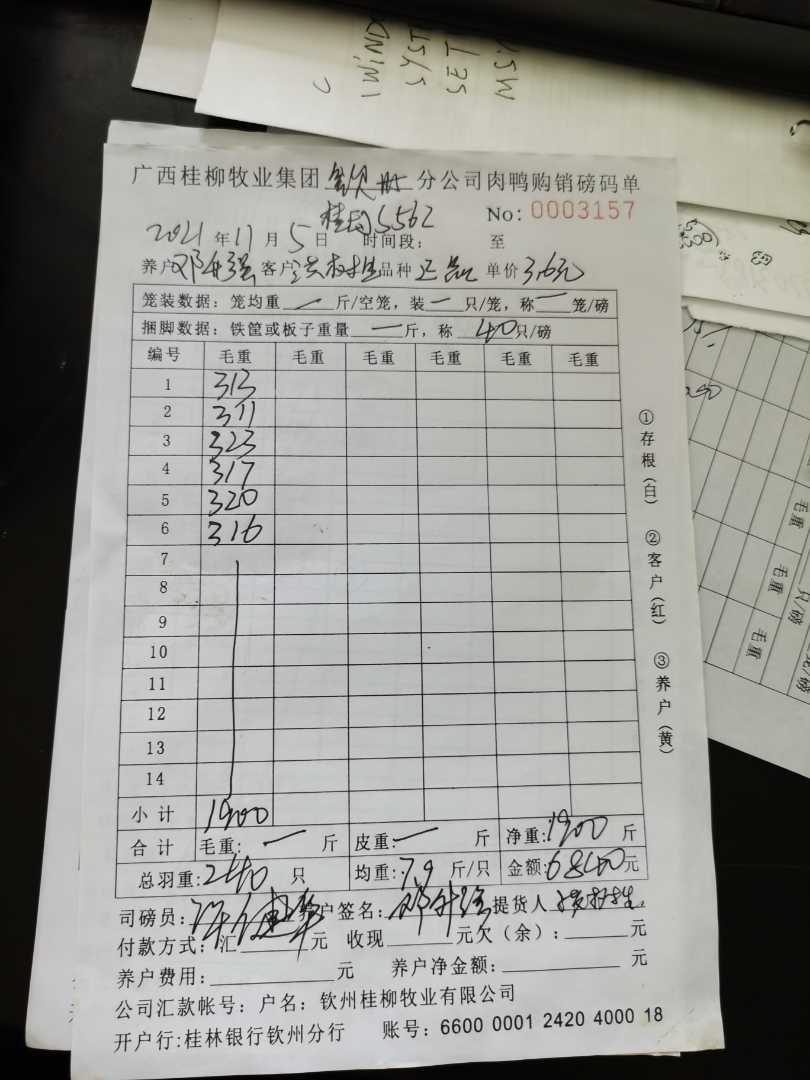 WIND
SYST
TES
广西桂柳牧业集团 钦州 分公司肉鸭购销磅码单
5562 No: 0003157
2021年11月5日 时间段: 至
养户 邓升强 客户 品种 正品 单价 3.6元
笼装数据: 笼均重 一 斤/空笼, 装 一 只/笼, 称 一 笼/磅
捆脚数据: 铁筐或板子重量 一 斤, 称 40 只/磅
编号 毛重 毛重 毛重 毛重 毛重 毛重
1 313
2 311
3 323
4 317
5 320
6 316
7
8
9
10
11
12
13
14
小计 1900
合计 毛重: 一 斤 皮重: 一 斤 净重: 1900 斤
总羽重: 240 只 均重: 7.9 斤/只 金额: 6840元
司磅员: 养户签名: 邓升强 提货人
付款方式: 汇 元 收现 元欠(余): 元
养户费用: 元 养户净金额: 元
公司汇款帐号: 户名: 钦州桂柳牧业有限公司
开户行:桂林银行钦州分行 账号: 6600 0001 2420 4000 18
①存根(白) ②客户(红) ③养户(黄)
毛重
毛重
毛重
只/磅